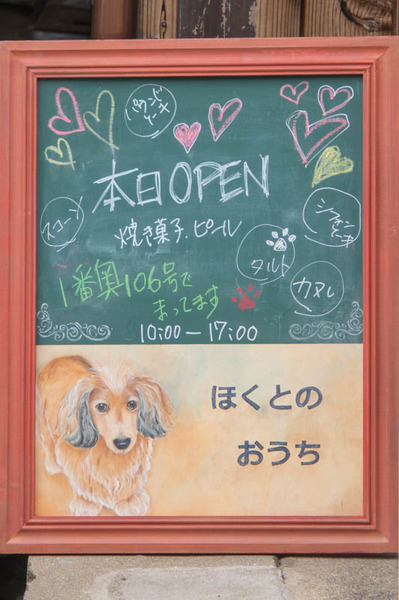 パウンド
ケーキ
本日OPEN
スコーン
焼き菓子.ビール
シフォン
ケーキ
タルト
カヌレ
1番奥106号で
まってます
10:00-17:00
ほくとの
おうち